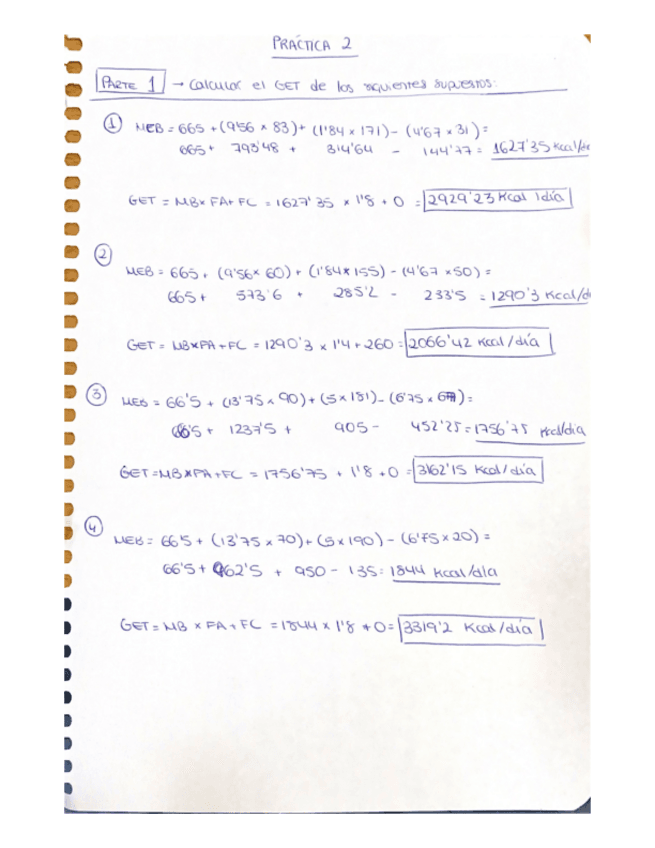 PRÁCTICA 2
PARTE 1 → Calcular el GET de los siguientes supuestos:
① MEB = 665 + (9'56 × 83) + (1'84 × 171) - (4'67 × 31) =
665 + 793'48 + 314'64 - 144'77 = 1627'35 Kcal/
GET = MB × FA + FC = 1627'35 × 1'8 + 0 = 2929'23 Kcal / día
② MEB = 665 + (9'56 × 60) + (1'84 × 155) - (4'67 × 50) =
665 + 573'6 + 285'2 - 233'5 = 1290'3 Kcal/d
GET = MB × FA + FC = 1290'3 × 1'4 + 260 = 2066'42 Kcal / día
③ MEB = 66'5 + (13'75 × 90) + (5 × 181) - (6'75 × 67) =
66'5 + 1237'5 + 905 - 452'25 = 1756'75 Kcal/día
GET = MB × FA + FC = 1756'75 + 1'8 + 0 = 3162'15 Kcal / día
④ MEB = 66'5 + (13'75 × 70) + (5 × 190) - (6'75 × 20) =
66'5 + 962'5 + 950 - 135 = 1844 Kcal/día
GET = MB × FA + FC = 1844 × 1'8 + 0 = 3319'2 Kcal / día